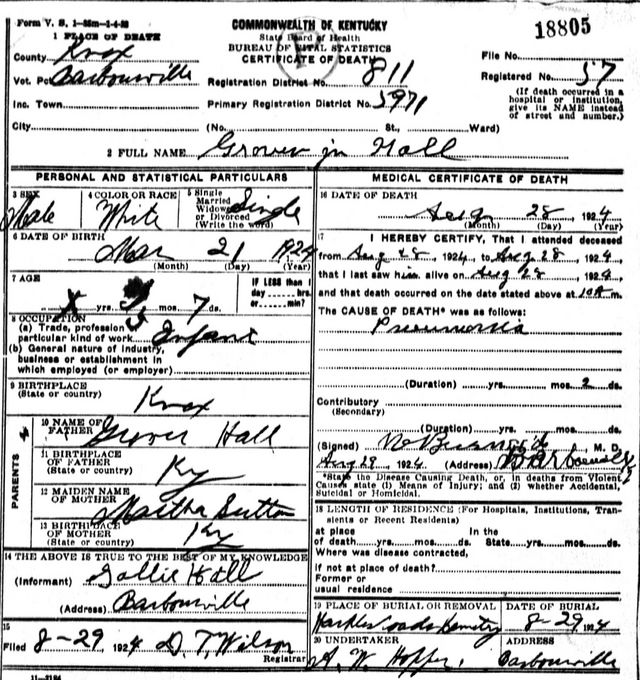 Form V. S. 1—35m—1-4-23
COMMONWEALTH OF KENTUCKY
State Board of Health
BUREAU OF VITAL STATISTICS
CERTIFICATE OF DEATH
18805
1 PLACE OF DEATH
County Knox
Vot. Pct Barbourville
Inc. Town
City
Registration District No. 811
Primary Registration District No. 5971
(No. St., Ward)
File No.
Registered No. 57
(If death occurred in a
hospital or institution,
give its NAME instead
of street and number.)
2 FULL NAME Grover jr Hall
PERSONAL AND STATISTICAL PARTICULARS
3 SEX
Male
4 COLOR OR RACE
White
5 Single
Married
Widowed
or Divorced
(Write the word)
Single
6 DATE OF BIRTH
Mar 21 1924
(Month) (Day) (Year)
7 AGE
X yrs. 5 mos. 7 ds.
IF LESS than 1
day hrs.
or min?
8 OCCUPATION
(a) Trade, profession or
particular kind of work Infant
(b) General nature of industry,
business or establishment in
which employed (or employer)
9 BIRTHPLACE
(State or country)
Knox
PARENTS
10 NAME OF
FATHER
Grover Hall
11 BIRTHPLACE
OF FATHER
(State or country)
Ky
12 MAIDEN NAME
OF MOTHER
Martha Sutton
13 BIRTHPLACE
OF MOTHER
(State or country)
Ky
14 THE ABOVE IS TRUE TO THE BEST OF MY KNOWLEDGE
(Informant) Hall
(Address) Barbourville
15
Filed 8-29, 1924 D. T. Wilson
Registrar
11—2184
MEDICAL CERTIFICATE OF DEATH
16 DATE OF DEATH
Aug 28, 1924
(Month) (Day) (Year)
17 I HEREBY CERTIFY, That I attended deceased
from Aug 28, 1924, to Aug 28, 1924,
that I last saw him alive on Aug 28, 1924
and that death occurred on the date stated above at 10 A m.
The CAUSE OF DEATH* was as follows:
Pneumonia
(Duration) yrs. mos. 2 ds.
Contributory
(Secondary)
(Duration) yrs. mos. ds.
(Signed) M. D.
Aug 29, 1924 (Address) Barbourville
*State the Disease Causing Death, or, in deaths from Violent
Causes state (1) Means of Injury; and (2) whether Accidental,
Suicidal or Homicidal.
18 LENGTH OF RESIDENCE (For Hospitals, Institutions, Tran-
sients or Recent Residents)
at place In the
of death yrs. mos. ds. State yrs. mos. ds.
Where was disease contracted,
if not at place of death?
Former or
usual residence
19 PLACE OF BURIAL OR REMOVAL
Cemetry
DATE OF BURIAL
8-29, 1924
20 UNDERTAKER
A. W. Hopper,
ADDRESS
Barbourville